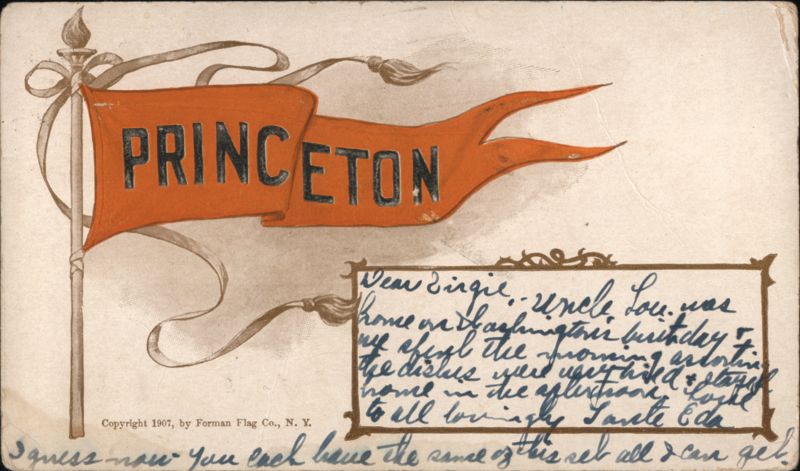 PRINCETON
Dear Virgie,- Uncle Lou. was
home on Washington's birthday &
we spent the morning assorting
the dishes were very tired & stayed
home in the afternoon. Love
to all lovingly Tante Eda
Copyright 1907, by Forman Flag Co., N. Y.
I guess now you each have the same of this set all I can get.